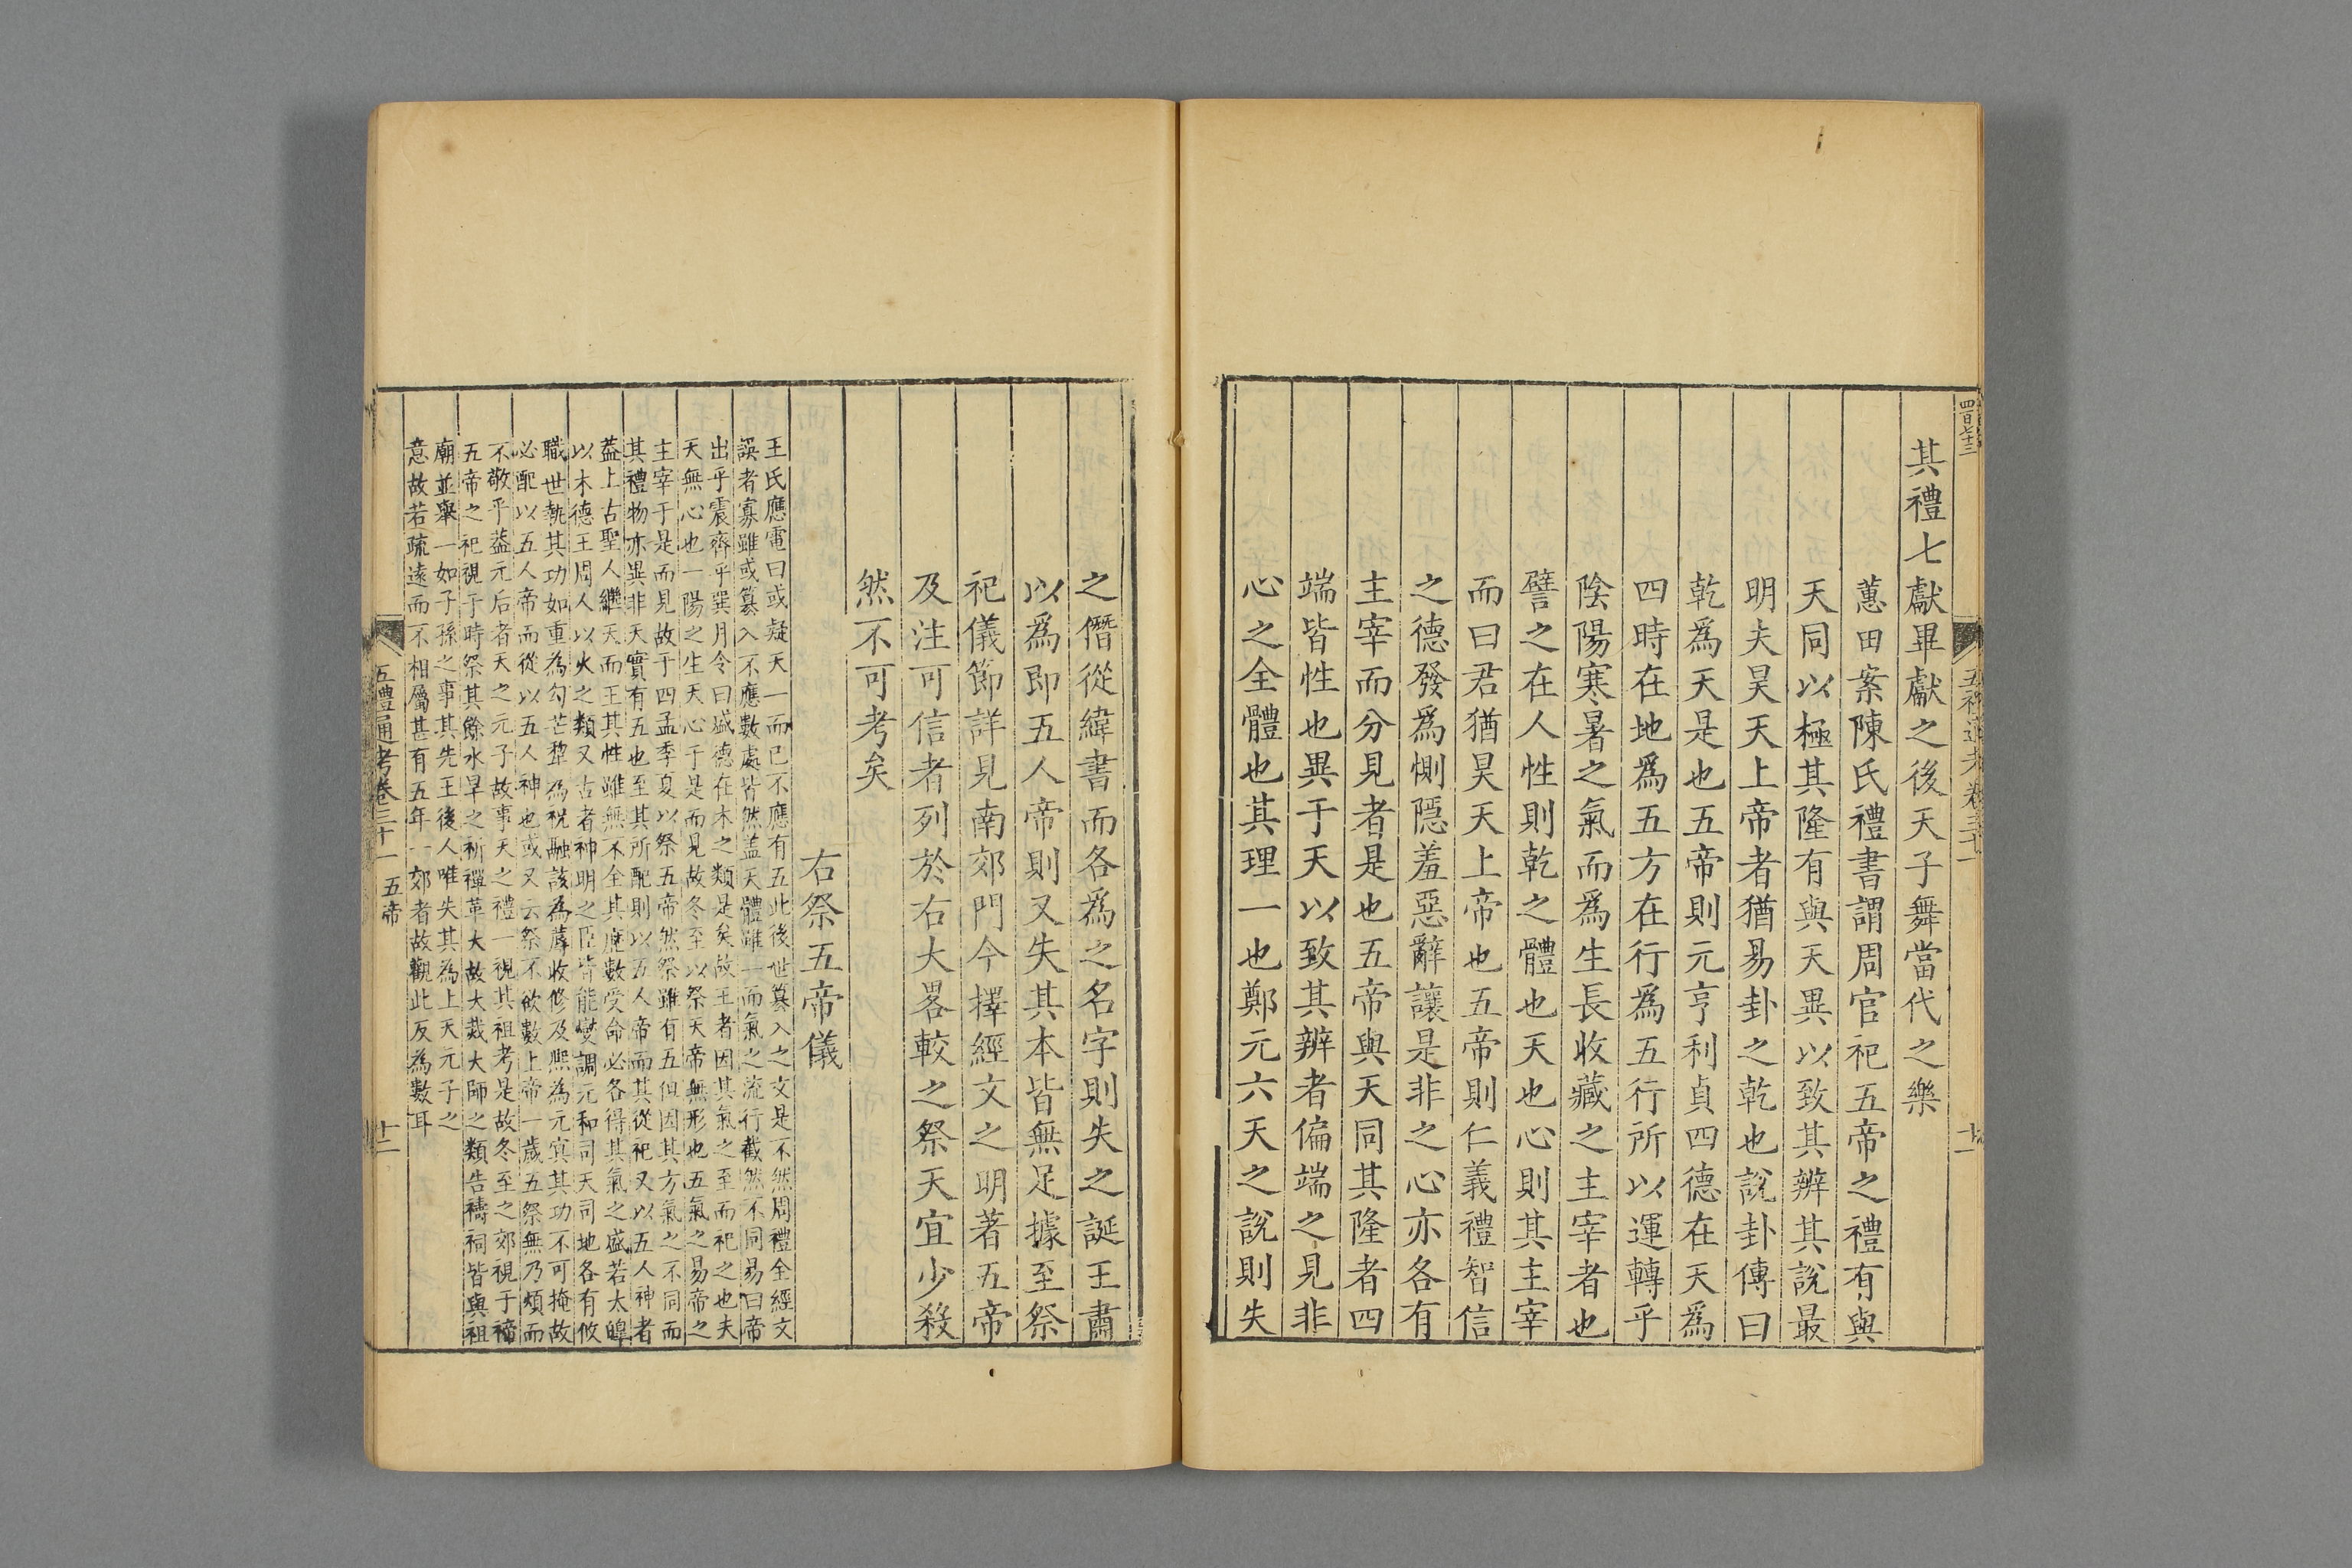 四百七十三
五禮通考卷三十一
十一
其禮七獻畢獻之後天子舞當代之樂
蕙田案陳氏禮書謂周官祀五帝之禮有與
天同以極其隆有與天異以致其辨其說最
明夫昊天上帝者猶易卦之乾也說卦傳曰
乾爲天是也五帝則元亨利貞四德在天爲
四時在地爲五方在行爲五行所以運轉乎
陰陽寒暑之氣而爲生長收藏之主宰者也
譬之在人性則乾之體也天也心則其主宰
而曰君猶昊天上帝也五帝則仁義禮智信
之德發爲惻隱羞惡辭讓是非之心亦各有
主宰而分見者是也五帝與天同其隆者四
端皆性也異于天以致其辨者偏端之見非
心之全體也其理一也鄭元六天之說則失
之僭從緯書而各爲之名字則失之誕王肅
以爲即五人帝則又失其本皆無足據至祭
祀儀節詳見南郊門今擇經文之明著五帝
及注可信者列於右大畧較之祭天宜少殺
然不可考矣
右祭五帝儀
王氏應電曰或疑天一而已不應有五此後世篡入之文是不然周禮全經文
誤者寡雖或篡入不應數處皆然盖天體雖一而氣之流行截然不同易曰帝
出乎震齊乎巽月令曰盛德在木之類是矣故王者因其氣之至而祀之也夫
天無心也一陽之生天心于是而見故冬至以祭天帝無形也五氣之易帝之
主宰于是而見故于四孟季夏以祭五帝然祭雖有五但因其方氣之不同而
其禮物亦異非天實有五也至其所配則以五人帝而其從祀又以五人神者
葢上古聖人繼天而王其性雖無不全其曆數受命必各得其氣之盛若太皥
以木德王周人以火之類又古者神明之臣皆能變調元和司天司地各有攸
職世執其功如重為勾芒犂為祝融該為蓐收修及熙為元㝠其功不可掩故
必配以五人帝而從以五人神也或又云祭不欲數上帝一歲五祭無乃煩而
不敬乎葢元后者天之元子故事天之禮一視其祖考是故冬至之郊視于禘
五帝之祀視于時祭其餘水旱之祈禪革大故大烖大師之類告禱祠皆與祖
廟並舉一如子孫之事其先王後人唯失其為上天元子之
意故若疏遠而不相屬甚有五年一郊者故觀此反為數耳
五禮通考卷三十一 五帝
十二